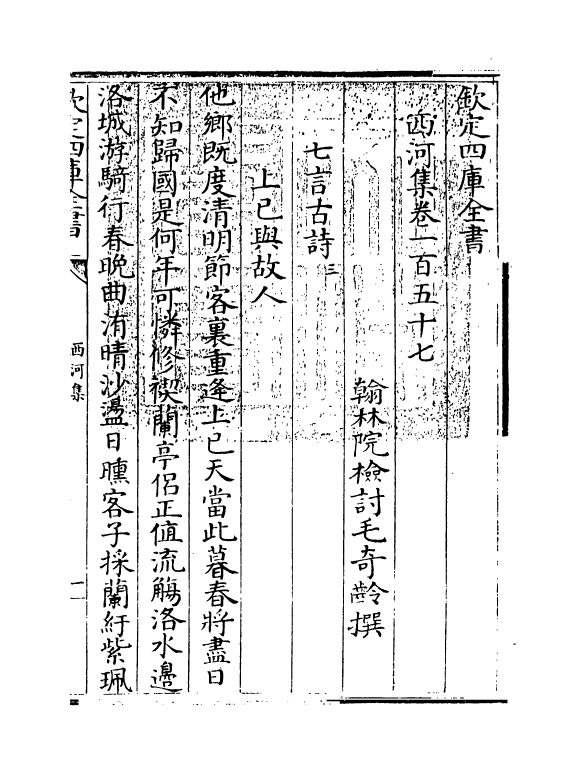 欽定四庫全書
西河集卷一百五十七
翰林院檢討毛奇齡撰
七言古詩三
上巳與故人
他鄉既度清明節客裏重逢上巳天當此暮春將盡日
不知歸國是何年可憐修禊蘭亭侣正值流觴洛水邊
洛城游騎行春晚曲洧晴沙盪日曛客子採蘭紆紫珮
欽定四庫全書
西河集
一